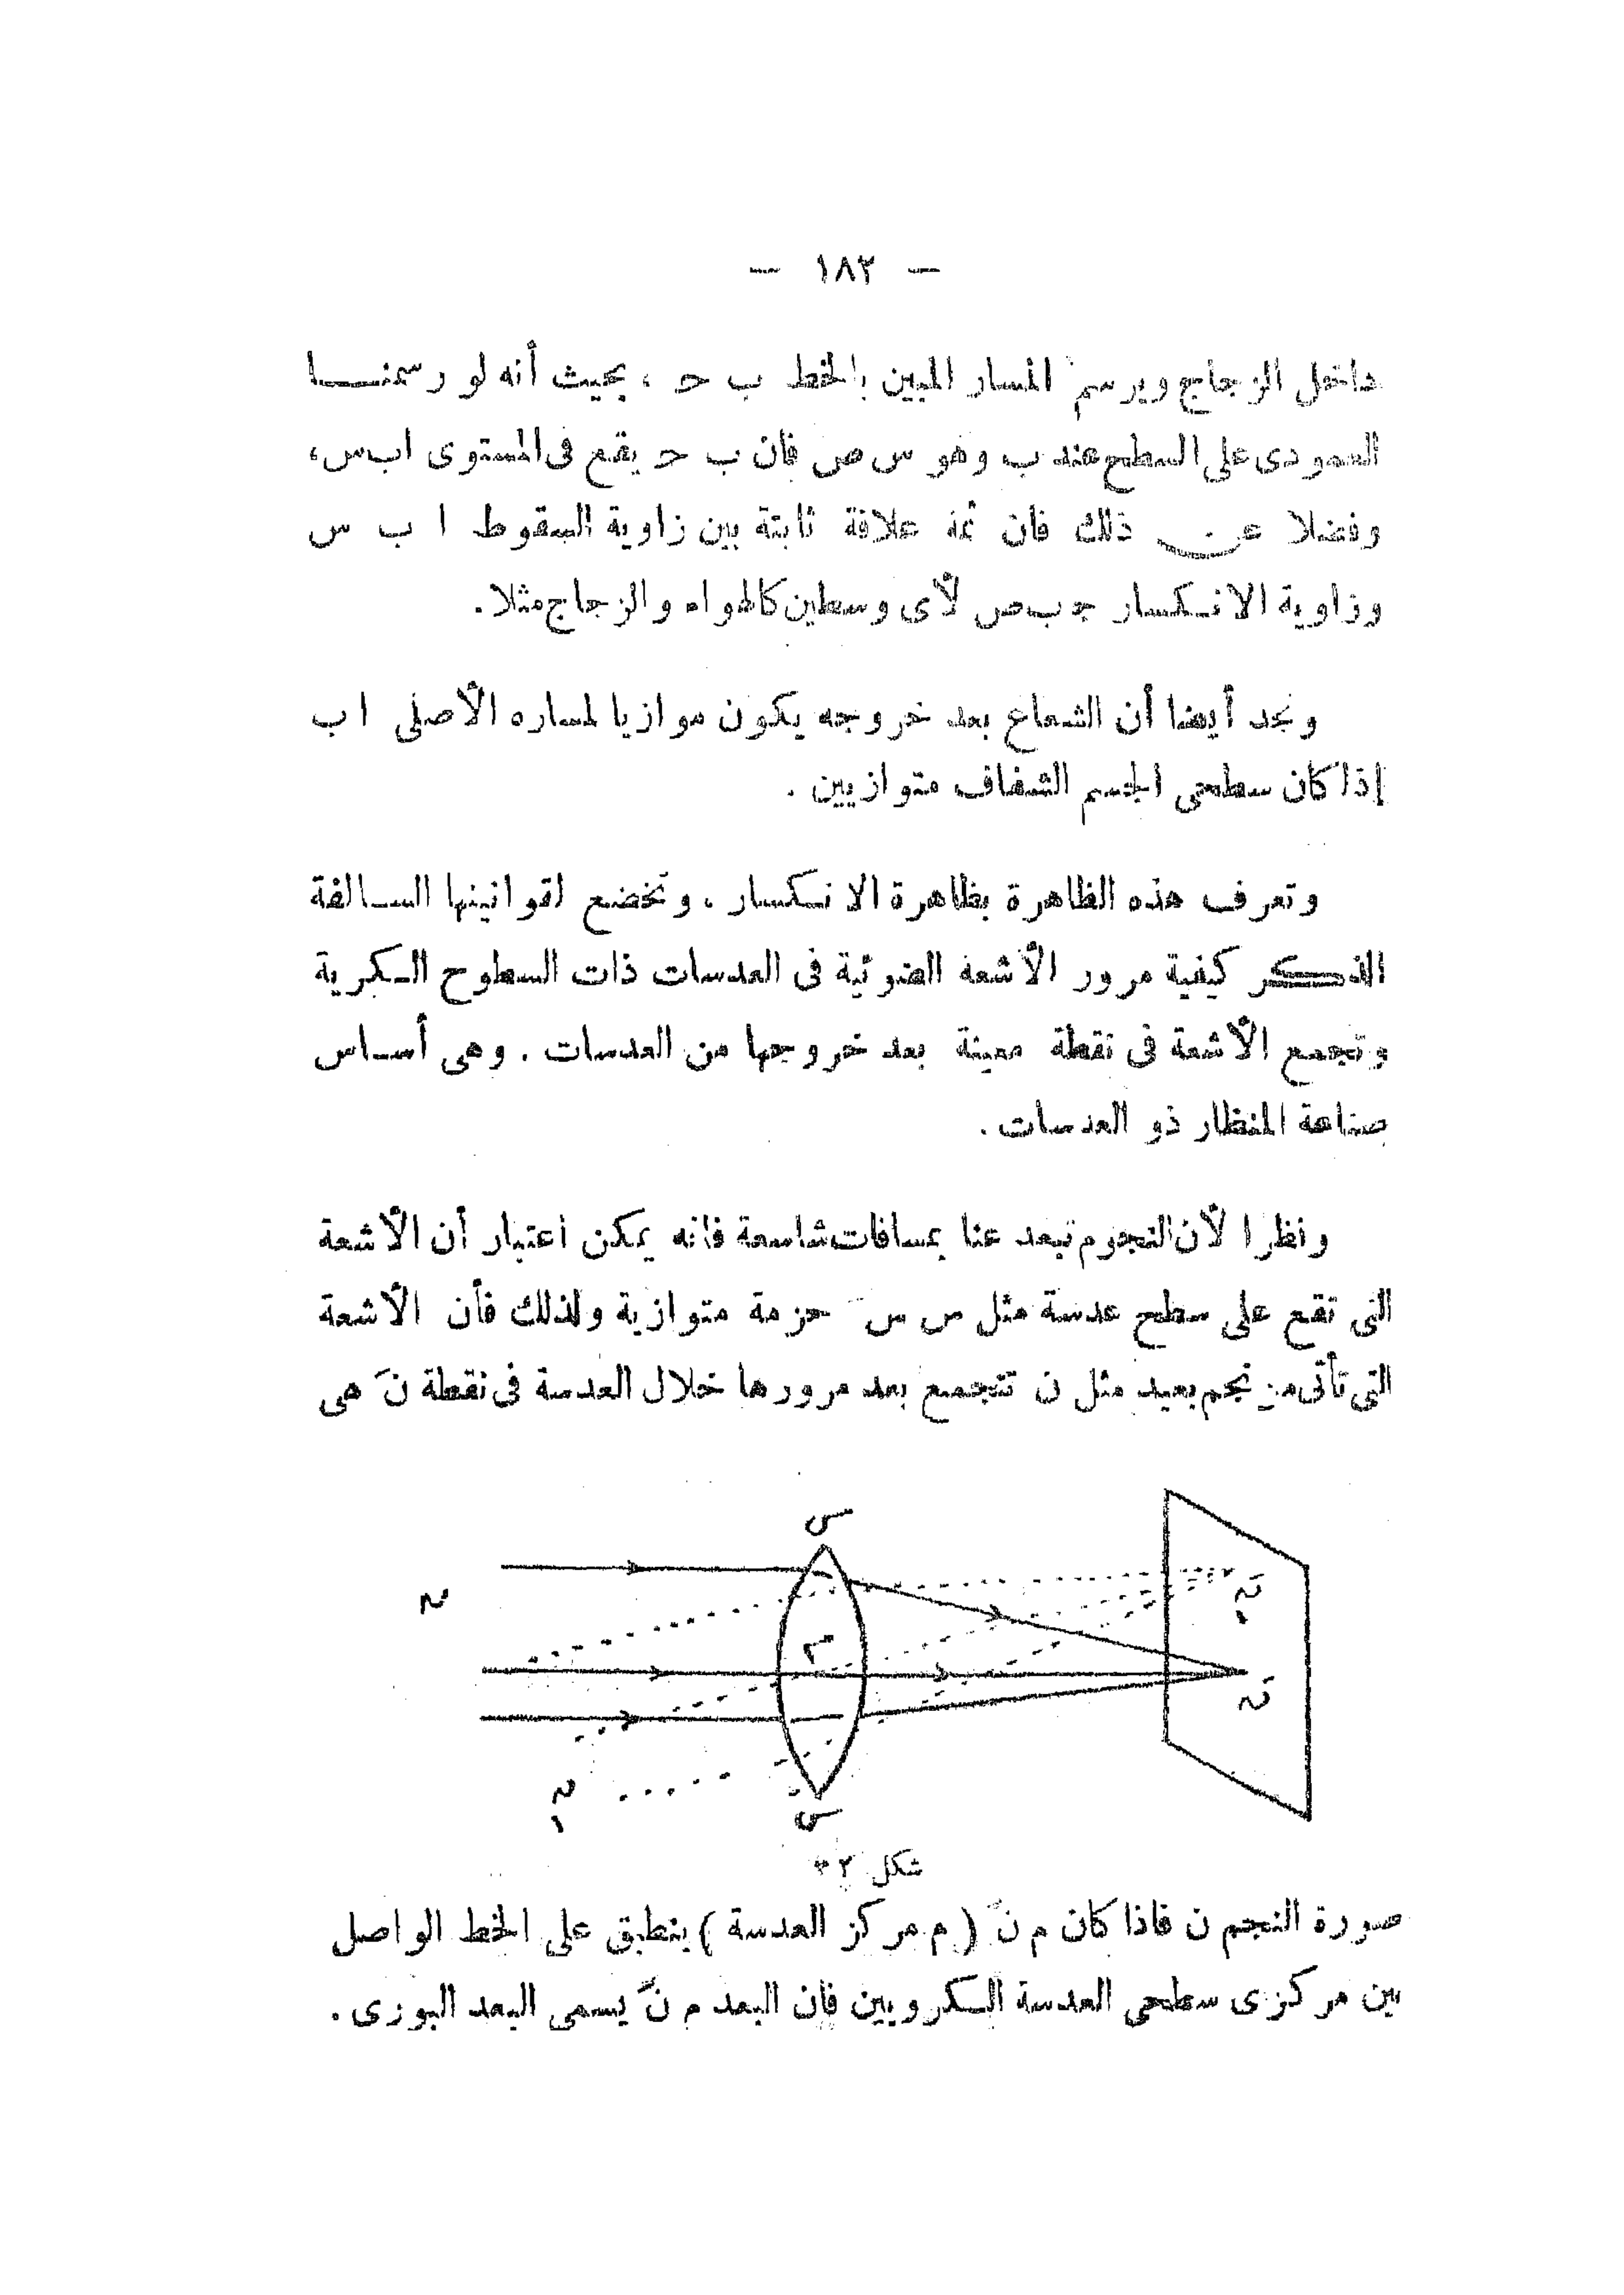 — ١٨٢ —
داخل الزجاج ويرسم المسار المبين بالخط ب ح ، بحيث أنه لو رسمنـــا
العمودى على السطح عند ب وهو س ص فان ب ح يقع فى المستوى اب س،
وفضلا عن ذلك فان ثمة علاقة ثابتة بين زاوية السقوط ا ب س
وزاوية الانكسار ج ب ص لأى وسطين كالهواء والزجاج مثلا.
ونجد أيضا أن الشعاع بعد خروجه يكون موازيا لمساره الأصلى ا ب
إذا كان سطحى الجسم الشفاف متوازيين .
وتعرف هذه الظاهرة بظاهرة الانكسار ، وتخضع لقوانينها السالفة
الذكر كيفية مرور الأشعة الضوئية فى العدسات ذات السطوح الكرية
وتجمع الأشعة فى نقطة معينة بعد خروجها من العدسات . وهى أساس
صناعة المنظار ذو العدسات .
ونظرا لأن النجوم تبعد عنا بمسافات شاسعة فانه يمكن اعتبار أن الأشعة
التى تقع على سطح عدسة مثل س سَ حزمة متوازية ولذلك فأن الأشعة
التى تأتى من نجم بعيد مثل ن تتجمع بعد مرورها خلال العدسة فى نقطة نَ هى
س
ن
نَ١
م
نَ
ن١
س
شكل ٢
صورة النجم ن فاذا كان م نَ ( م مركز العدسة ) ينطبق على الخط الواصل
بين مركزى سطحى العدسة الكرويين فان البعد م نَ يسمى البعد البورى .